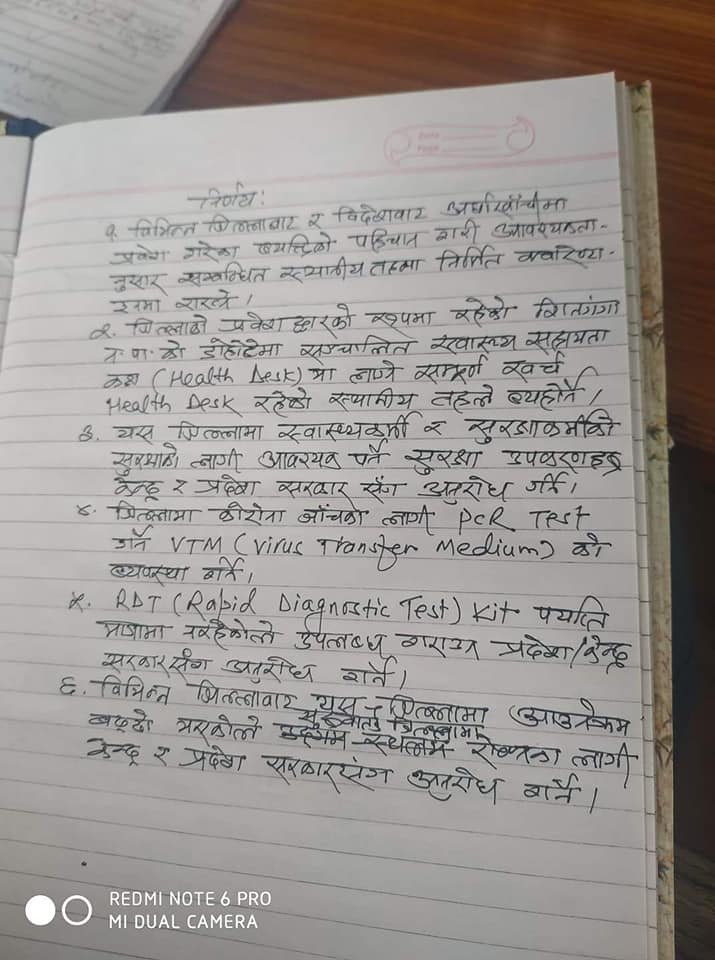 Date
Page
निर्णय:
१. विभिन्न जिल्लाबाट र विदेशबाट अर्घाखाँचीमा
प्रवेश गरेका व्यक्तिको पहिचान गरी आवश्यकता-
नुसार सम्बन्धित स्थानीय तहमा निर्मित क्वारेण्टा-
इनमा राख्ने।
२. जिल्लाको प्रवेशद्वारको रुपमा रहेको शितगंगा
न.पा. को ठोहोटेमा सञ्चालित स्वास्थ्य सहायता
कक्ष (Health Desk) मा लाग्ने सम्पूर्ण खर्च
Health Desk रहेको स्थानीय तहले व्यहोर्ने।
३. यस जिल्लामा स्वास्थ्यकर्मी र सुरक्षाकर्मीको
सुरक्षाको लागी आवश्यक पर्ने सुरक्षा उपकरणहरु
केन्द्र र प्रदेश सरकार सँग अनुरोध गर्ने।
४. जिल्लामा कोरोना जाँचका लागी PCR Test
गर्न VTM (Virus Transfer Medium) को
व्यवस्था गर्ने।
५. RDT (Rapid Diagnostic Test) Kit पर्याप्त
मात्रामा नरहेकोले उपलब्ध गराउन प्रदेश/केन्द्र
सरकारसँग अनुरोध गर्ने।
६. विभिन्न जिल्लाबाट यस जिल्लामा आउनेक्रम
बढ्दो भएकोले सम्बन्धित जिल्लामा उद्गम स्थलमै रोक्नका लागी
केन्द्र र प्रदेश सरकारसंग अनुरोध गर्ने।
REDMI NOTE 6 PRO
MI DUAL CAMERA